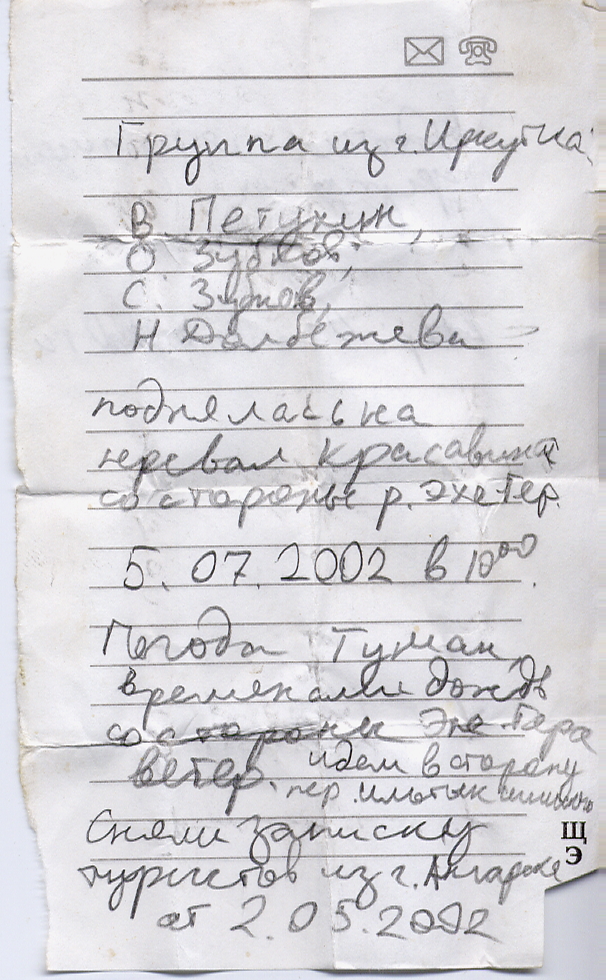 Группа из г. Иркутска
В Петухин,
О Зубков,
С. Зубков,
Н Долбежева
поднялась на
перевал Красавица
со стороны р. Эхе-Гер.
5. 07. 2002 в 10⁰⁰.
Погода Туман,
временами дождь
со стороны Эхе-Гера
ветер. идем в сторону
пер.
Сняли записку
туристов из г. Ангарска
от 2.05.2002
Щ
Э